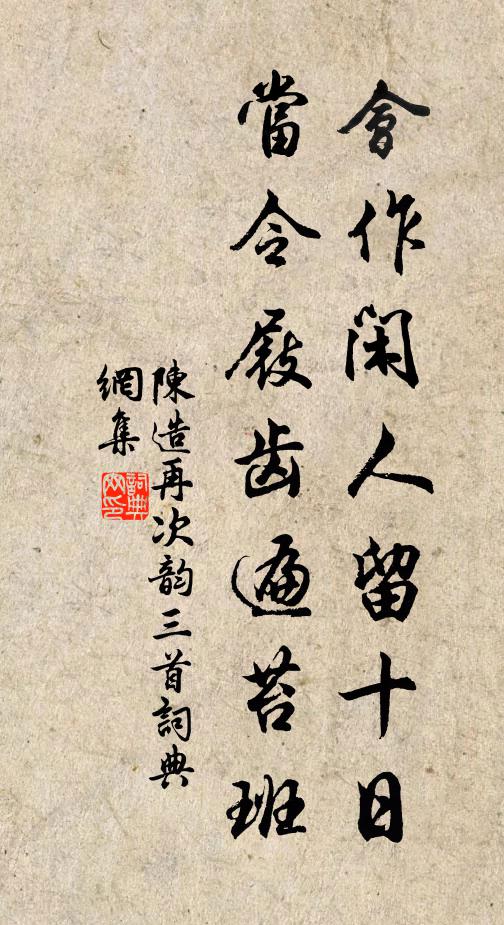 會作閑人留十日
當令屐齒遍苔班
陳造再次韵三首詞典
網集
詞典網印